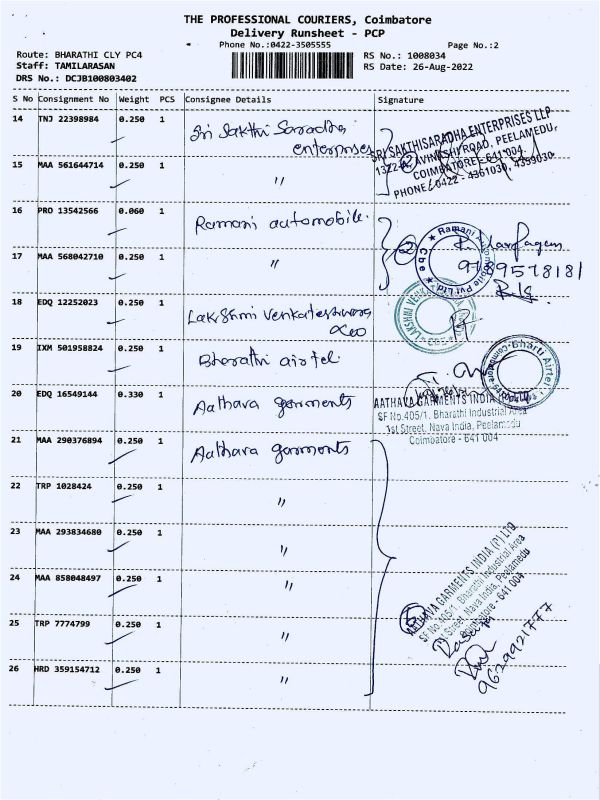 THE PROFESSIONAL COURIERS, Coimbatore
Delivery Runsheet - PCP
Phone No.:0422-3505555 Page No.:2
Route: BHARATHI CLY PC4 RS No.: 1008034
Staff: TAMILARASAN RS Date: 26-Aug-2022
DRS No.: DCJB100803402
S No Consignment No Weight PCS Consignee Details Signature
14 TNJ 22398984 0.250 1 Sri Sakthi Saradha
enterprises
SRI SAKTHISARADHA ENTERPRISES LLP
AVINASHI ROAD, PEELAMEDU,
COIMBATORE - 641 004.
PHONE: 0422 - 4361030, 4399030
15 MAA 561644714 0.250 1 "
16 PRO 13542566 0.060 1 Ramani automobile.
17 MAA 568042710 0.250 1 "
2
Ramani Automobile Pvt Ltd.
Cbe
9789578181
18 EDQ 12252023 0.250 1 Lakshmi Venkateshwara
19 IXM 501958824 0.250 1 Bharathi airtel.
Bharti Airtel
20 EDQ 16549144 0.330 1 Aathava garments
AATHAVA GARMENTS INDIA (P) LTD
SF No.405/1, Bharathi Industrial Area
1st Street, Nava India, Peelamedu
Coimbatore - 641 004
21 MAA 290376894 0.250 1 Aathava garments
22 TRP 1028424 0.250 1 "
23 MAA 293834680 0.250 1 "
24 MAA 858048497 0.250 1 "
25 TRP 7774799 0.250 1 "
26 HRD 359154712 0.250 1 "
AATHAVA GARMENTS INDIA (P) LTD
SF No.405/1, Bharathi Industrial Area
1st Street, Nava India, Peelamedu
Coimbatore - 641 004
9629921777